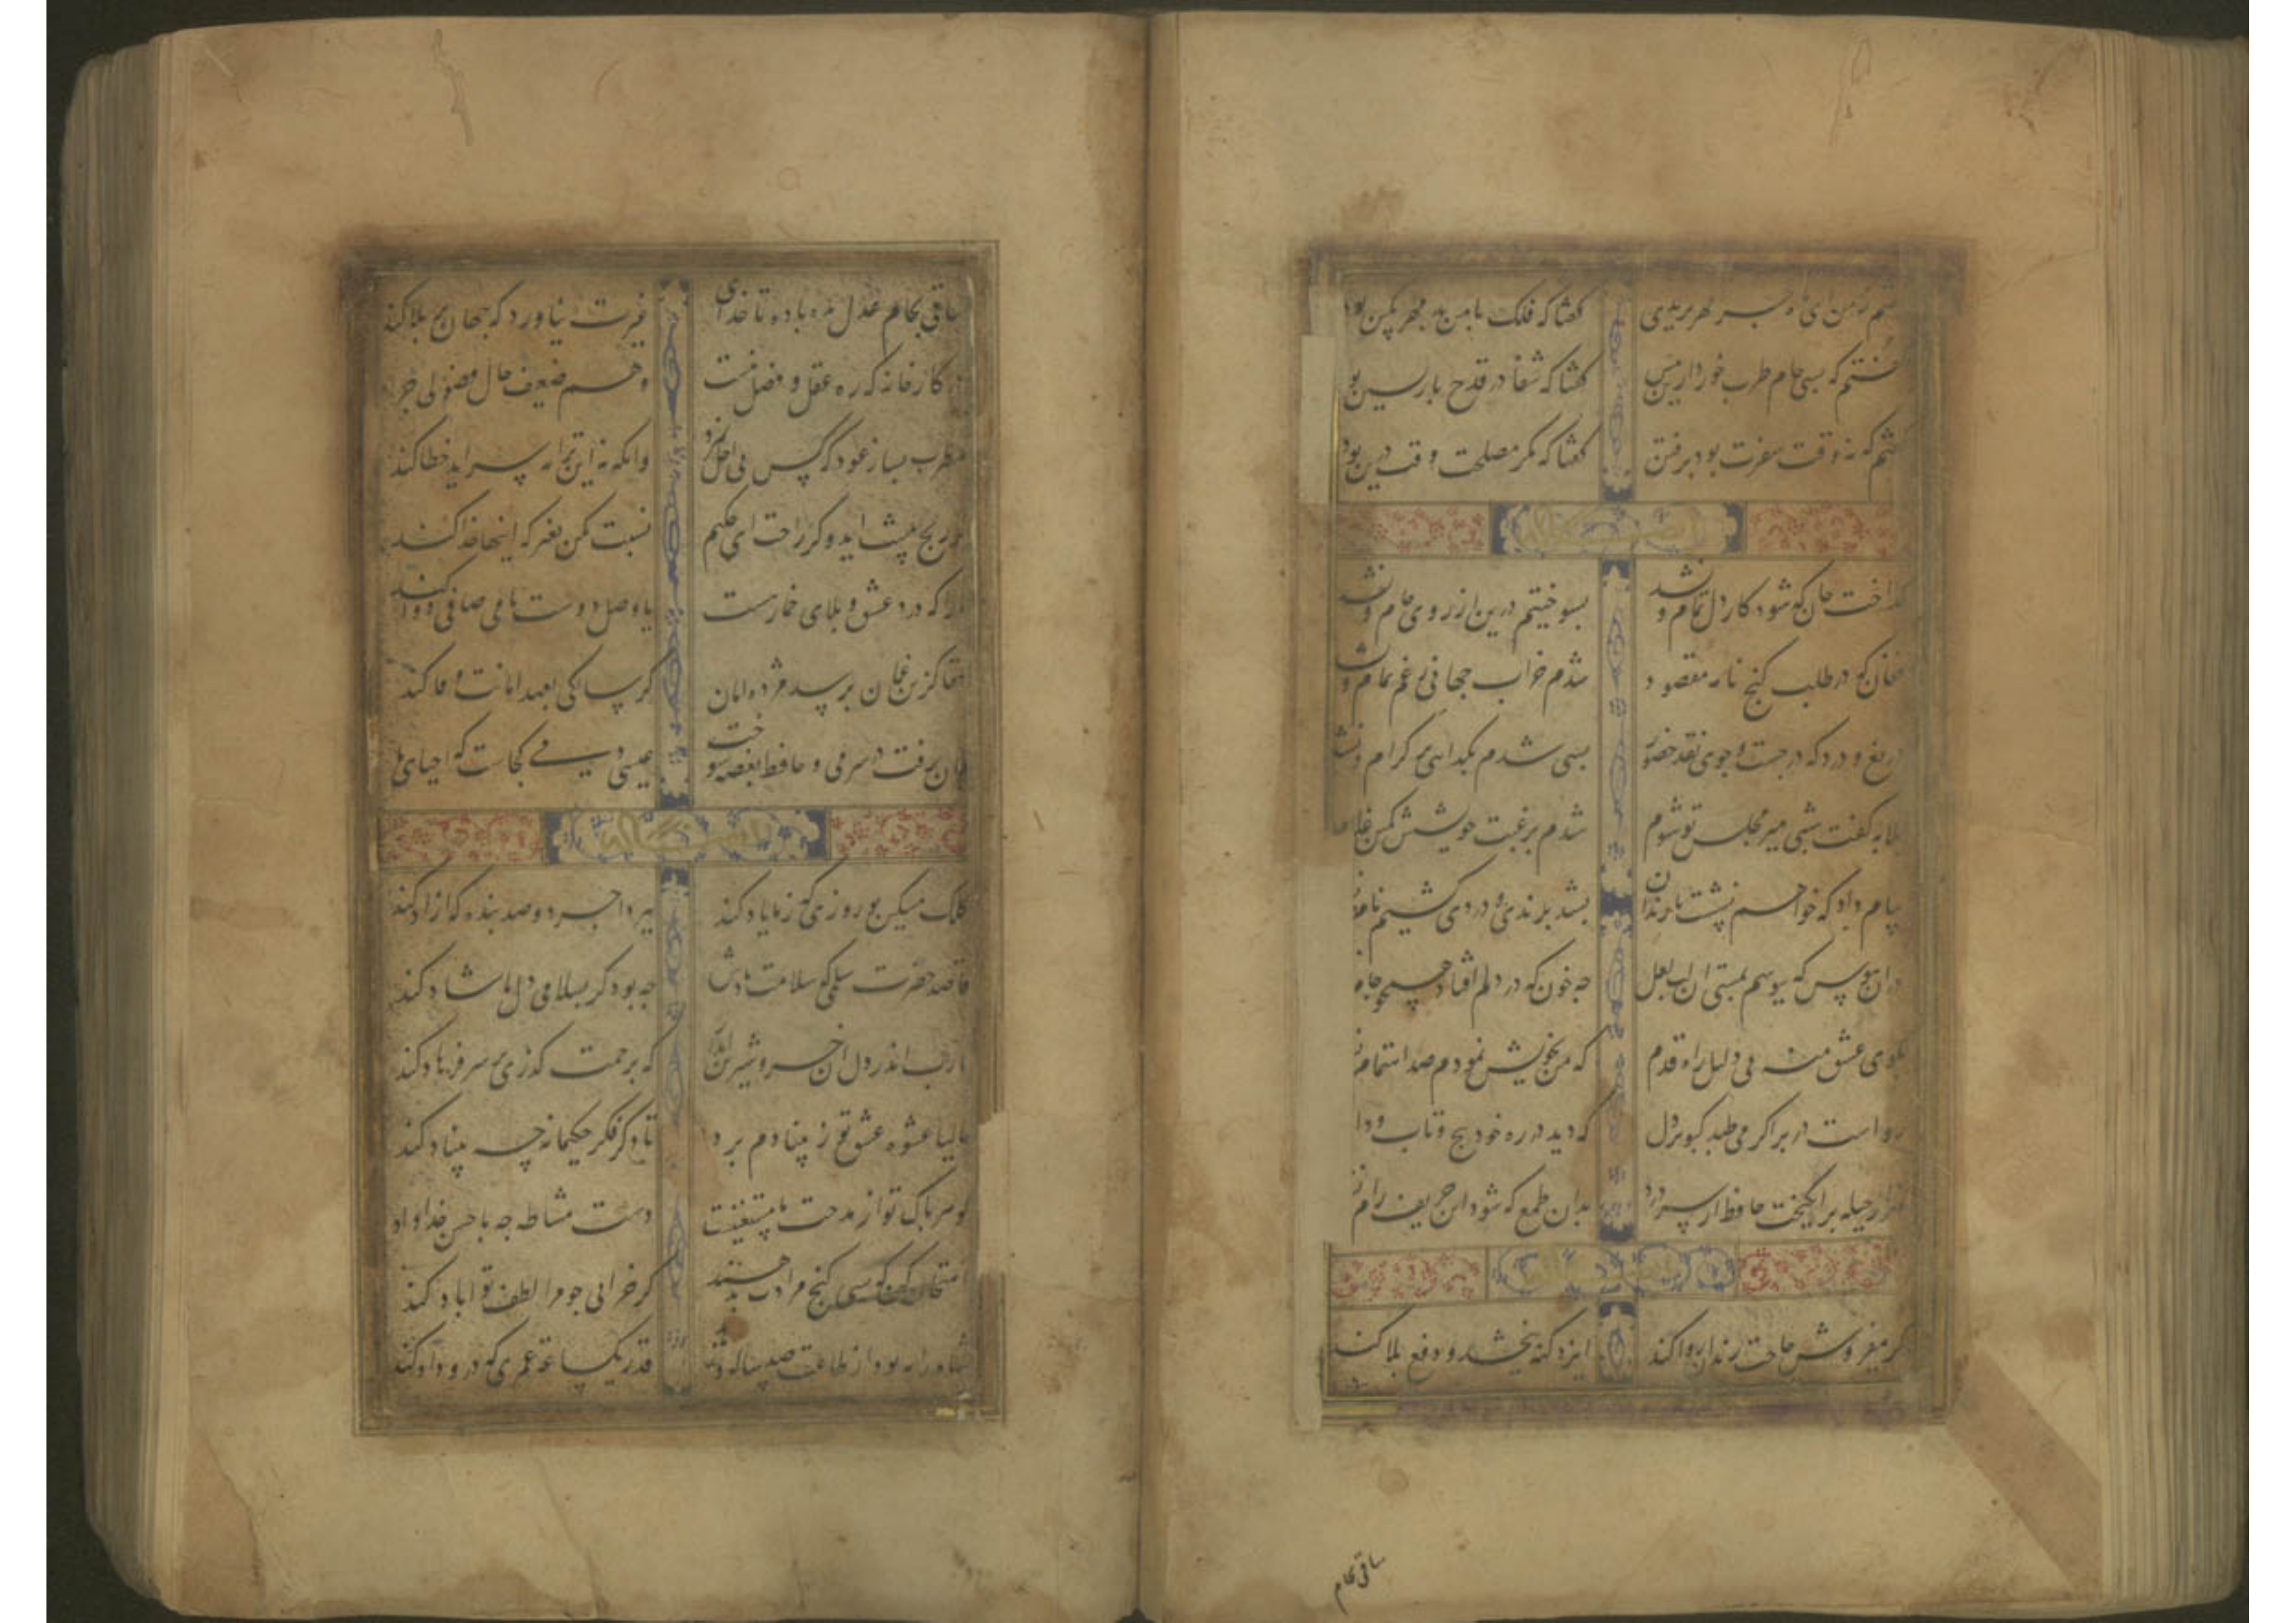 گفتم ز من ای ماه چرا مهر بریدی گفتا که فلک با من بد مهر بکین بود
گفتم که بسی جام طرب خوردی ازین پیش گفتا که شفا در قدح بازپسین بود
گفتم که نه وقت سفرت بود برفتن گفتا که مگر مصلحت وقت درین بود
گداخت جان که شود کار دل تمام و نشد بسوختیم درین آرزوی خام و نشد
فغان که در طلب گنج نامه مقصود شدم خراب جهانی ز غم تمام و نشد
دریغ و درد که در جست و جوی نقد حضور بسی شدم بگدایی بر کرام و نشد
بلابه گفت شبی میر مجلس تو شوم شدم برغبت خویشش کمین غلام
پیام داد که خواهم نشست با رندان بشد برندی و دردی کشیم نام
دران هوس که ببوسم بمستی ان لب لعل چه خون که در دلم افتاد همچو جام
بکوی عشق منه بی دلیل راه قدم که من بخویش نمودم صد اهتمام
رواست در بر اگر می طپد کبوتر دل که دید در ره خود پیچ و تاب و دا
هزار حیله برانگیخت حافظ از سر بدان طمع که شود ان حریف رام
گر میفروش حاجت رندان روا کند ایزد گنه ببخشد و دفع بلا کند
ساقی بجام
ساقی بجام عدل بده باده تا گدای غیرت نیاورد که جهان پر بلا کند
در کارخانه که ره عقل و فضل نیست وهم ضعیف حال فضولی چرا
مطرب بساز عود که کس بی اجل نمرد وانکه نه این ترانه سراید خطا کند
گر رنج پیشت اید و گر راحت ای حکیم نسبت مکن بغیر که اینها خدا کند
ما را که درد عشق و بلای خمارست یا وصل دوست یا می صافی دوا کند
حقا کزین غمان برسد مژده امان گر سالکی بعهد امانت وفا کند
جان رفت در سر می و حافظ بغصه سوخت عیسی دمی کجاست که احیای ما
کلک مشکین تو روزی که ز ما یاد کند ببرد اجر دو صد بنده که ازاد کند
قاصد حضرت سلمی که سلامت بادش چه بود گر بسلامی دل ما شاد کند
یارب اندر دل ان خسرو شیرین انداز که برحمت گذری بر سر فرهاد کند
حالیا عشوه عشق تو ز بنیادم برد تا دگر فکر حکیمانه چه بنیاد کند
گوهر پاک تو از مدحت ما مستغنیست دست مشاطه چه با حسن خداداد
امتحان کن که بسی گنج مرادت بدهند گر خرابی چو مرا لطف تو اباد کند
شاه را به بود از طاعت صد ساله و زهد قدر یک ساعته عمری که درو داد کند